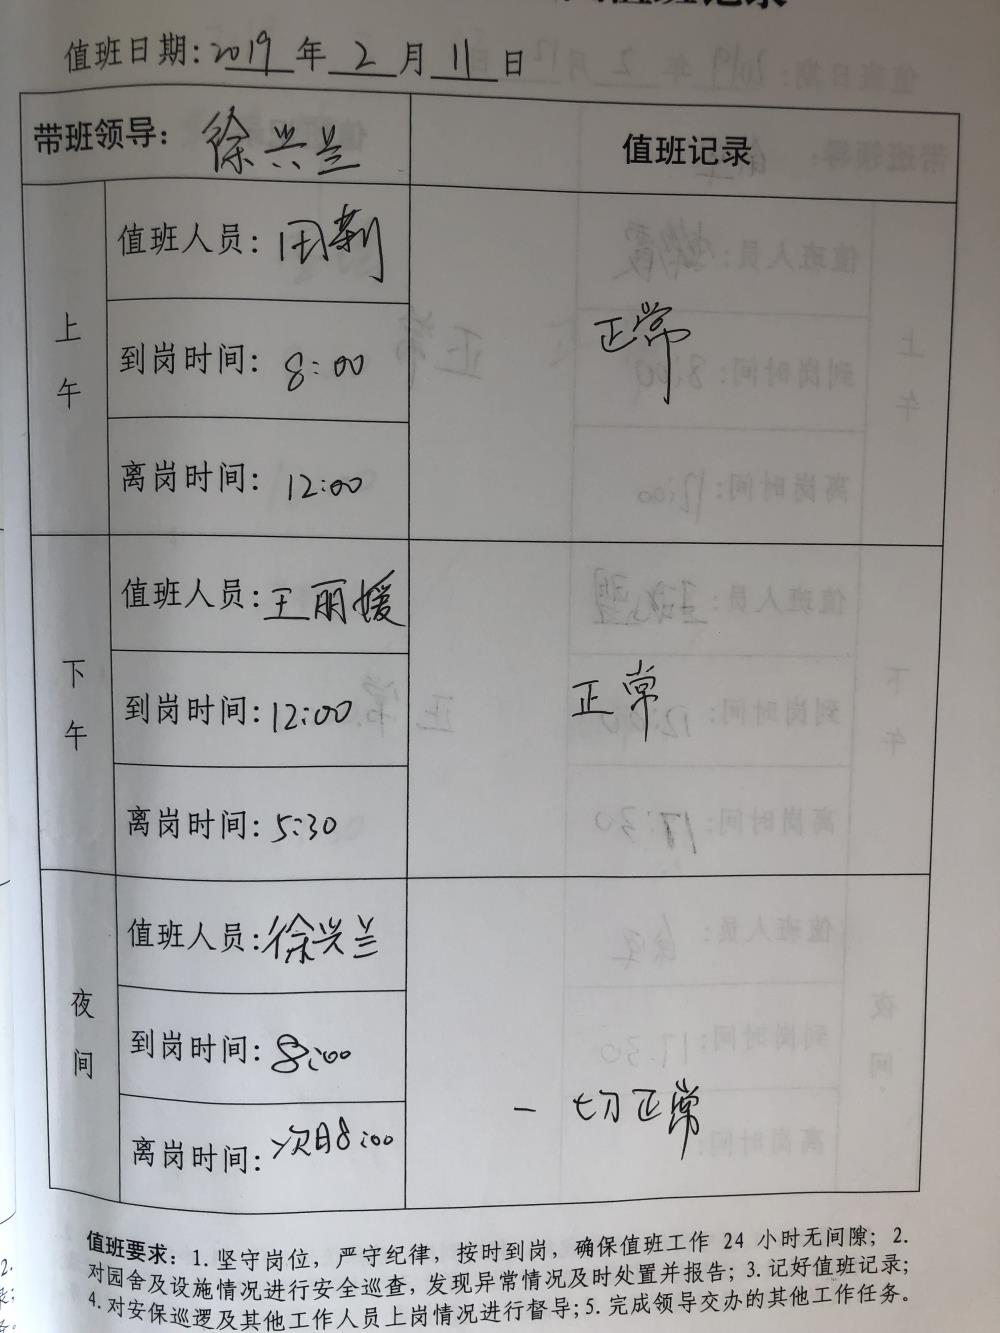 值班记录
值班日期: 2019 年 2 月 11 日
带班领导: 徐兴兰
值班记录
上午
值班人员: 田莉
到岗时间: 8:00
离岗时间: 12:00
正常
下午
值班人员: 王丽媛
到岗时间: 12:00
离岗时间: 5:30
正常
夜间
值班人员: 徐兴兰
到岗时间: 8:00
离岗时间: 次日8:00
一切正常
值班要求: 1. 坚守岗位, 严守纪律, 按时到岗, 确保值班工作 24 小时无间隙; 2.
对园舍及设施情况进行安全巡查, 发现异常情况及时处置并报告; 3. 记好值班记录;
4. 对安保巡逻及其他工作人员上岗情况进行督导; 5. 完成领导交办的其他工作任务。